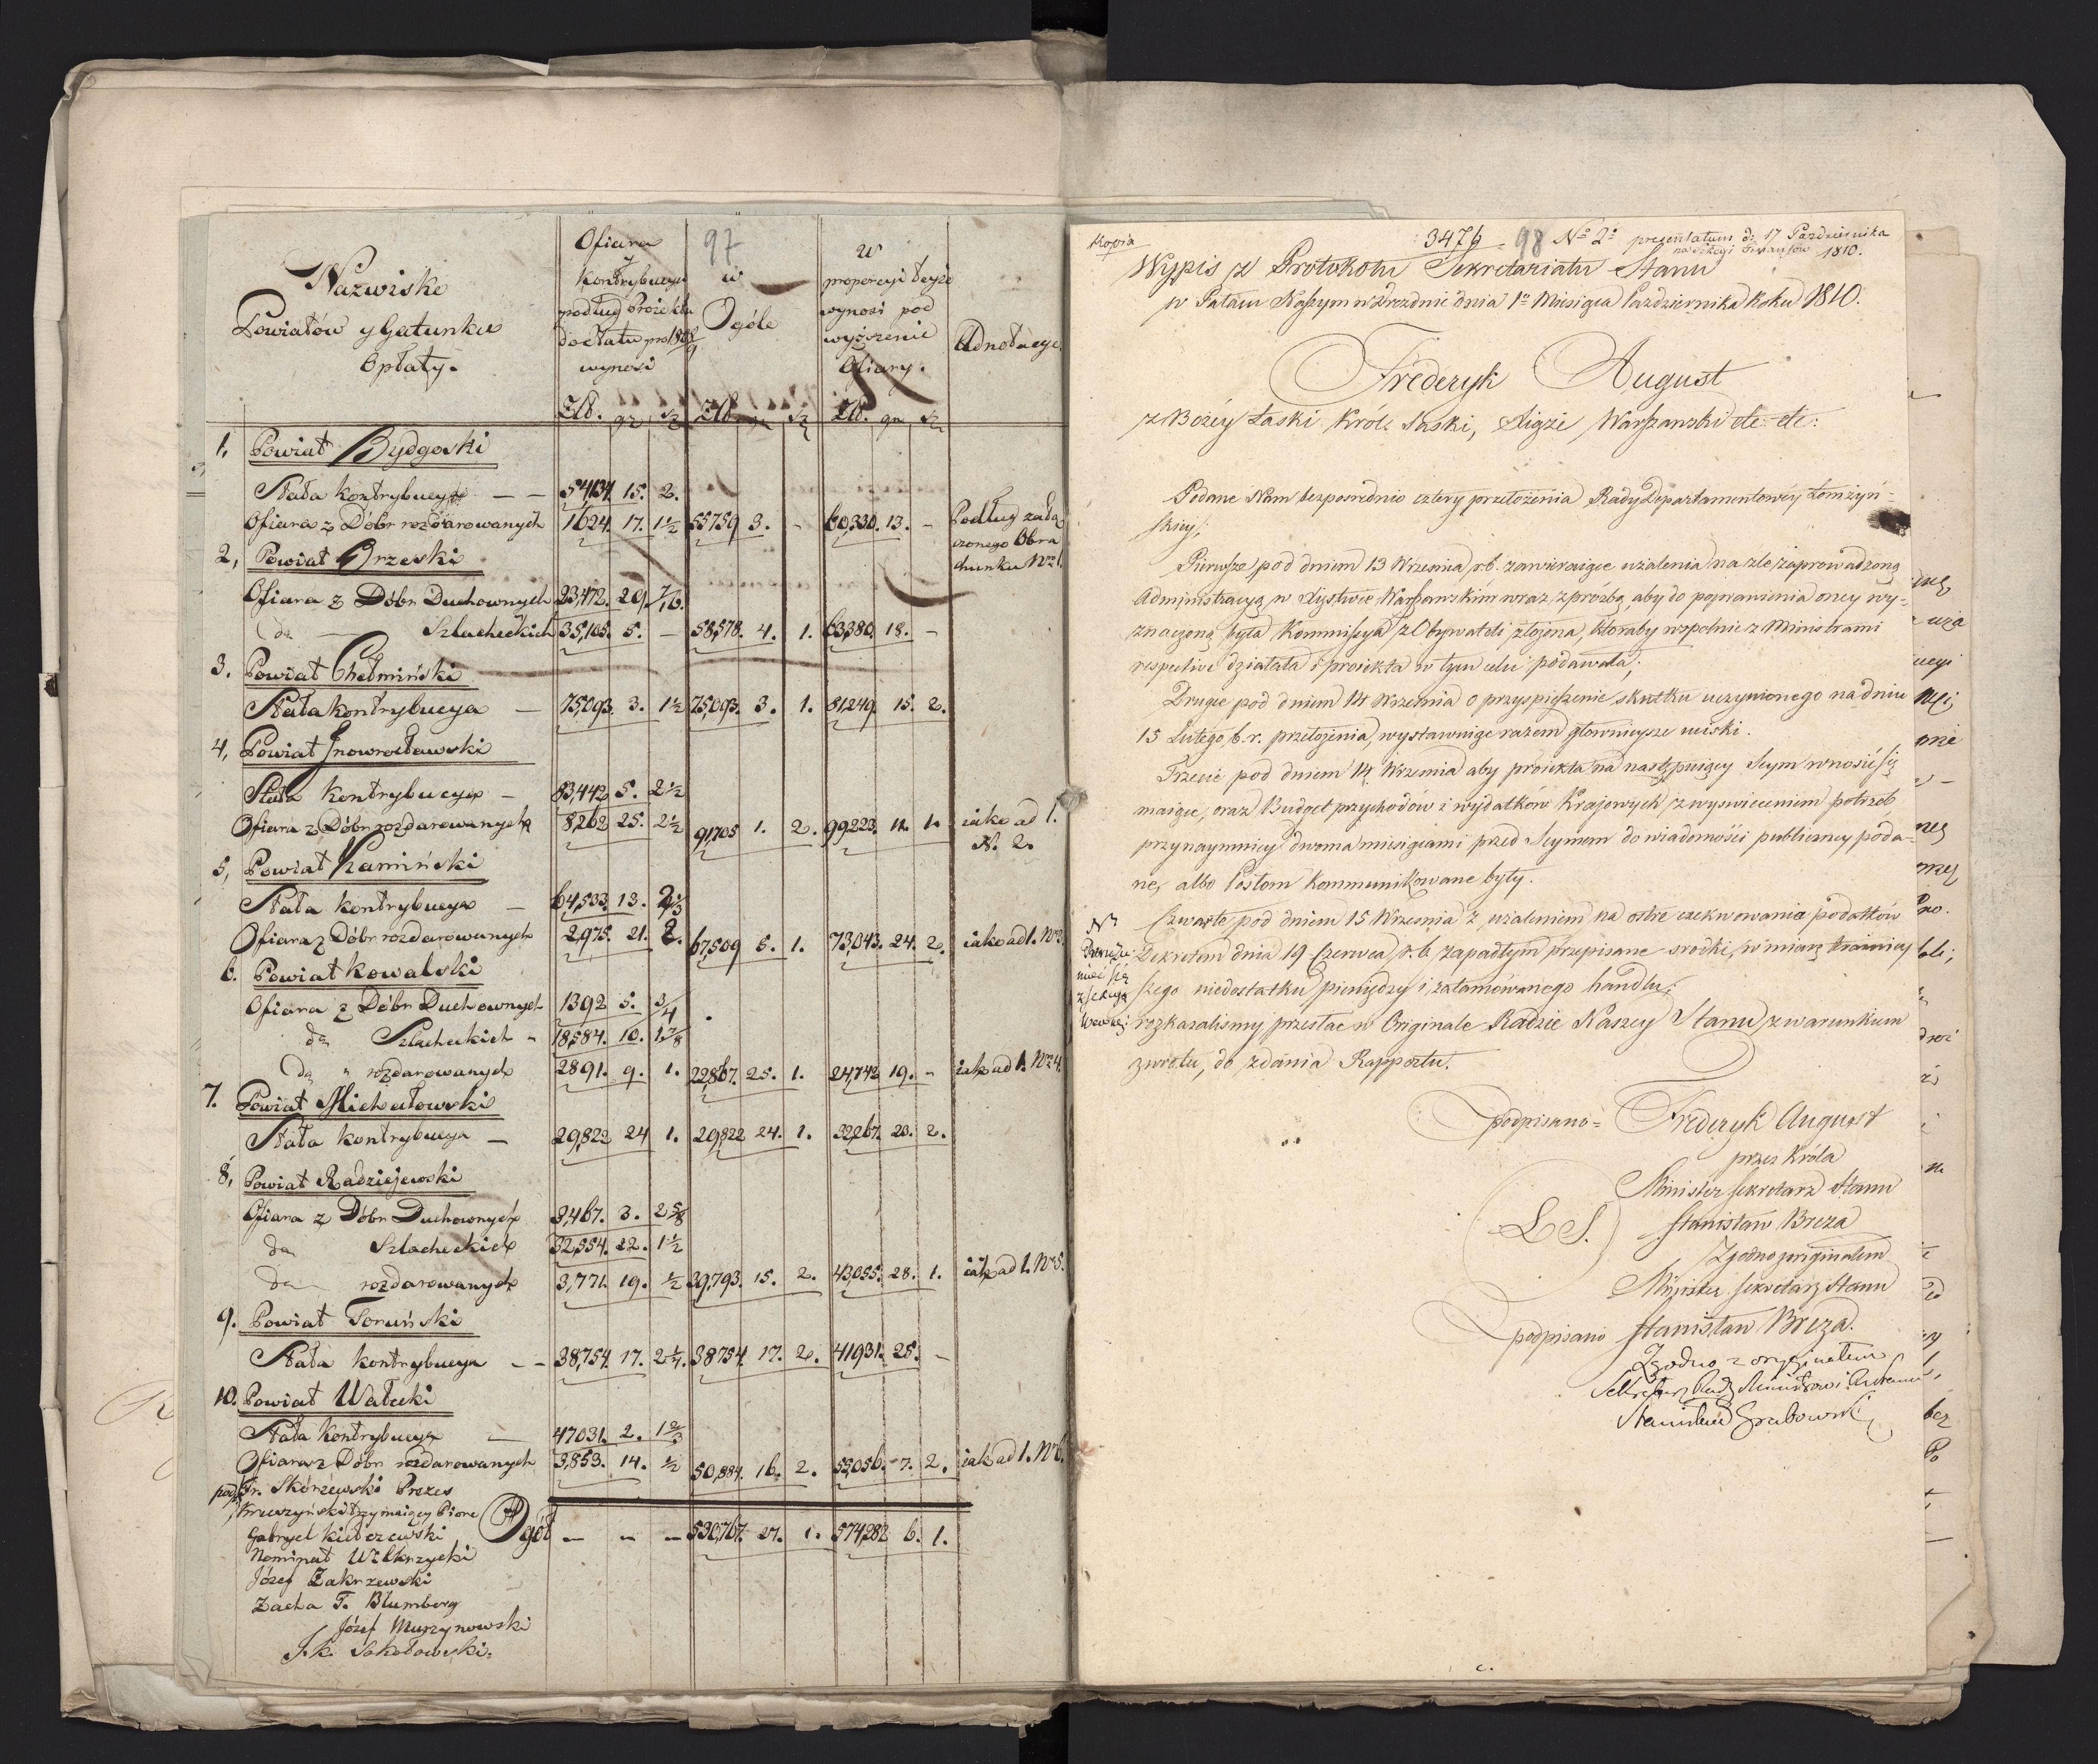 97
Nazwisko
Powiatów y Gatunku
Opłaty.
Ofiara
y
Kontrybucya
podług Proiektu
do Etatu pro 1808/9
wynosi
w
Ogóle
w
proporcyi teyże
wynosi pod
wyższenie
Ofiary.
Adnotacye
Złł. gr. sz. Złł. gr. sz. Złł. gr. sz.
1. Powiat Bydgoski
Stała kontrybucya — — 54134. 15. 2.
Ofiara z Dóbr rozdarowanych 1624. 17. 1½ 55759 3. - 60,330. 13. - Podług załą
czonego Obra
chunku Nro 1.
2, Powiat Brzeski
Ofiara z Dóbr Duchownych 23,472. 29. 7/16.
do — Szlacheckich 35,105. 5. — 58,578. 4. 1. 63,380. 18. -
3. Powiat Chełmiński
Stała kontrybucya — 75,093. 3. 1½ 75,093. 3. 1. 81,249. 15. 2.
4, Powiat Inowrocławski
Stała kontrybucya — 83,442 5. 2½
Ofiara z Dóbr rozdarowanych 8,262 25. 2½ 91,705 1. 2. 99,223. 11. 1. iako ad 1.
N. 2.
5, Powiat Kamiński
Stała kontrybucya — 64,533. 13. 2⅓
Ofiara z Dóbr rozdarowanych 2,975. 21. 2. 67,509 5. 1. 73,043. 24. 2. iako ad 1. Nro 3.
6. Powiat Kowalski
Ofiara z Dóbr Duchownych 1392 5. 3/4
do Szlacheckich - 18,584. 10. 1⅞
do " rozdarowanych 2891. 9. 1. 22,867. 25. 1. 24,742 19. - iak ad 1. Nro 4.
7. Powiat Michałowski
Stała kontrybucya — 29,822 24 1. 29,822 24. 1. 32,267. 20. 2.
8, Powiat Radziejewski
Ofiara z Dóbr Duchownych 3,467. 3. 2⅝
do Szlacheckich 32,554. 22. 1½
do rozdarowanych 3,771. 19. ½ 39,793. 15. 2. 43,055. 28. 1. iak ad 1. Nro 5.
9. Powiat Toruński
Stała kontrybucya — — 38,754. 17. 2¼. 38754. 17. 2. 41931. 25. -
10. Powiat Wałecki
Stała kontrybucya — 47031. 2. 1⅔
Ofiara z Dóbr rozdarowanych 3,853. 14. ½ 50,884. 16. 2. 55,056. 7. 2. iak ad 1. Nro 6.
podp: Fr. Skórzewski Prezes
Kruszyński trzymaiący Pióro
Ogół — — — 530,767. 27. 1. 574,282 6. 1.
Gabryel Kiełczewski
Nominat Wilkrzycki
Józef Zakrzewski
Zacha F. Blumberg
Józef Murzynowski
J. k. Sokołowski.
Kopia
3476 98 No 2o presentatum d: 17 Października
1810.
Wypis z Protokołu Sekretariatu Stanu
w Pałacu Naszym w Dreznie dnia 1o Miesiąca Października Roku 1810.
Frederyk August
z Bożéy Łaski Król Saski, Xiąże Warszawski etc. etc:
Podane Nam bezpośrednio cztery przełożenia Rady Departamentowéy Łomżyń-
skiey;
Pierwsze pod dniem 13 Września r.b. zawieraiące użalenia na źle zaprowadzoną
Administracyą w Xięstwie Warszawskim wraz z proźbą, aby do poprawienia oney wy-
znaczoną była Kommissya z Obywateli złożona, ktoraby wspolnie z Ministrami
respective działała i proiekta w tym celu podawała;
Drugie pod dniem 14 Września o przyspieszenie skutku uczynionego na dniu
15 Lutego b.r. przełożenia, wystawuiąc razem głównieysze uciski.
Trzecie pod dniem 14 Września aby proiekta na następuiący Seym wnosić się
maiące, oraz Budget przychodów i wydatków Kraiowych, z wyswieceniem potrzeb
przynaymniey dwoma miesiącami przed Seymem do wiadomości publiczney poda-
ne, albo Posłom kommunikowane były.
Czwarte pod dniem 15 Września z użaleniem na ostre exekwowania podatków
Dekretem dnia 19 Czerwca r.b. zapadłym przepisane srodki, w miarę
szego niedostatku pieniędzy i zatamowanego handlu;
rozkazalismy przesłać w Originale Radzie Naszey Stanu, z warunkiem
zwrotu, do zdania Rapportu.
podpisano = Frederyk August
przez Króla
Minister Sekretarz Stanu
L S. Stanisław Breza
Zgodno z originałem
Minister Sekretarz Stanu
podpisano Stanisław Breza.
Zgodno z oryginałem
Stanisław Grabowski